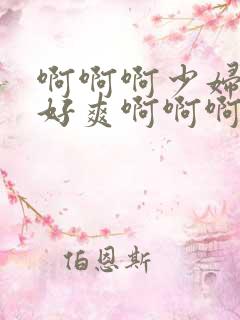 啊啊啊少婦
好爽啊啊啊
伯恩斯